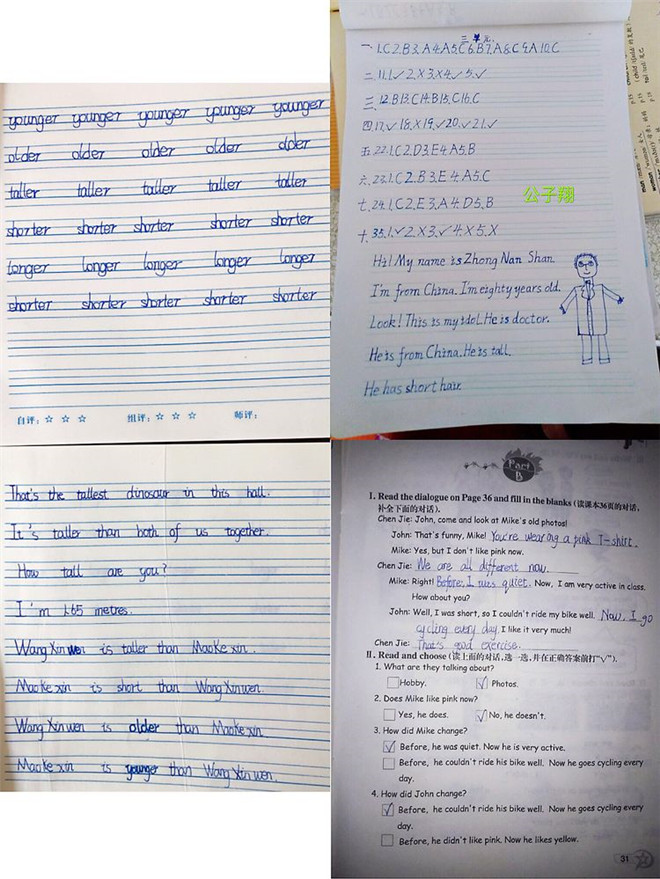 younger younger younger younger younger
older older older older older
taller taller taller taller taller
shorter shorter shorter shorter shorter
longer longer longer longer longer
shorter shorter shorter shorter shorter
自评：☆ ☆ ☆ 组评：☆ ☆ ☆ 师评：
三单元.
一.1.C2.B3.A4.A5.C6.B7.A8.C9.A10.C
二.11.1.✓2.X3.X4.✓5.✓
三.12.B13.C14.B15.C16.C
四17.✓18.X19.✓20.✓21.✓
五.22.1.C2.D3.E4.A5.B
六.23.1.C2.B3.E4.A5.C
七.24.1.C2.E3.A4.D5.B
公子翔
十.35.1.✓2.X3.✓4.X5.X
Hi! My name is Zhong Nan Shan.
I'm from China. I'm eighty years old.
Look! This is my idol. He is doctor.
He is from China. He is tall.
He has short hair.
That's the tallest dinosaur in this hall.
It's taller than both of us together.
How tall are you?
I'm 1.65 metres.
Wang Xinwen is taller than Maoke xin.
Maoke xin is short than Wang Xinwen.
Wang Xinwen is older than Maoke xin.
Maoke xin is younger than Wang Xinwen.
Part B
I. Read the dialogue on Page 36 and fill in the blanks (读课本36页的对话，
补全下面的对话).
Chen Jie: John, come and look at Mike's old photos!
John: That's funny, Mike! You're wearing a pink T-shirt.
Mike: Yes, but I don't like pink now.
Chen Jie: We are all different now.
Mike: Right! Before, I was quiet. Now, I am very active in class.
How about you?
John: Well, I was short, so I couldn't ride my bike well. Now, I go
cycling every day. I like it very much!
Chen Jie: That's good exercise.
II. Read and choose (读上面的对话，选一选，并在正确答案前打“✓”).
1. What are they talking about?
Hobby. ✓ Photos.
2. Does Mike like pink now?
Yes, he does. ✓ No, he doesn't.
3. How did Mike change?
✓ Before, he was quiet. Now he is very active.
Before, he couldn't ride his bike well. Now he goes cycling every
day.
4. How did John change?
✓ Before, he couldn't ride his bike well. Now he goes cycling every
day.
Before, he didn't like pink. Now he likes yellow.
31